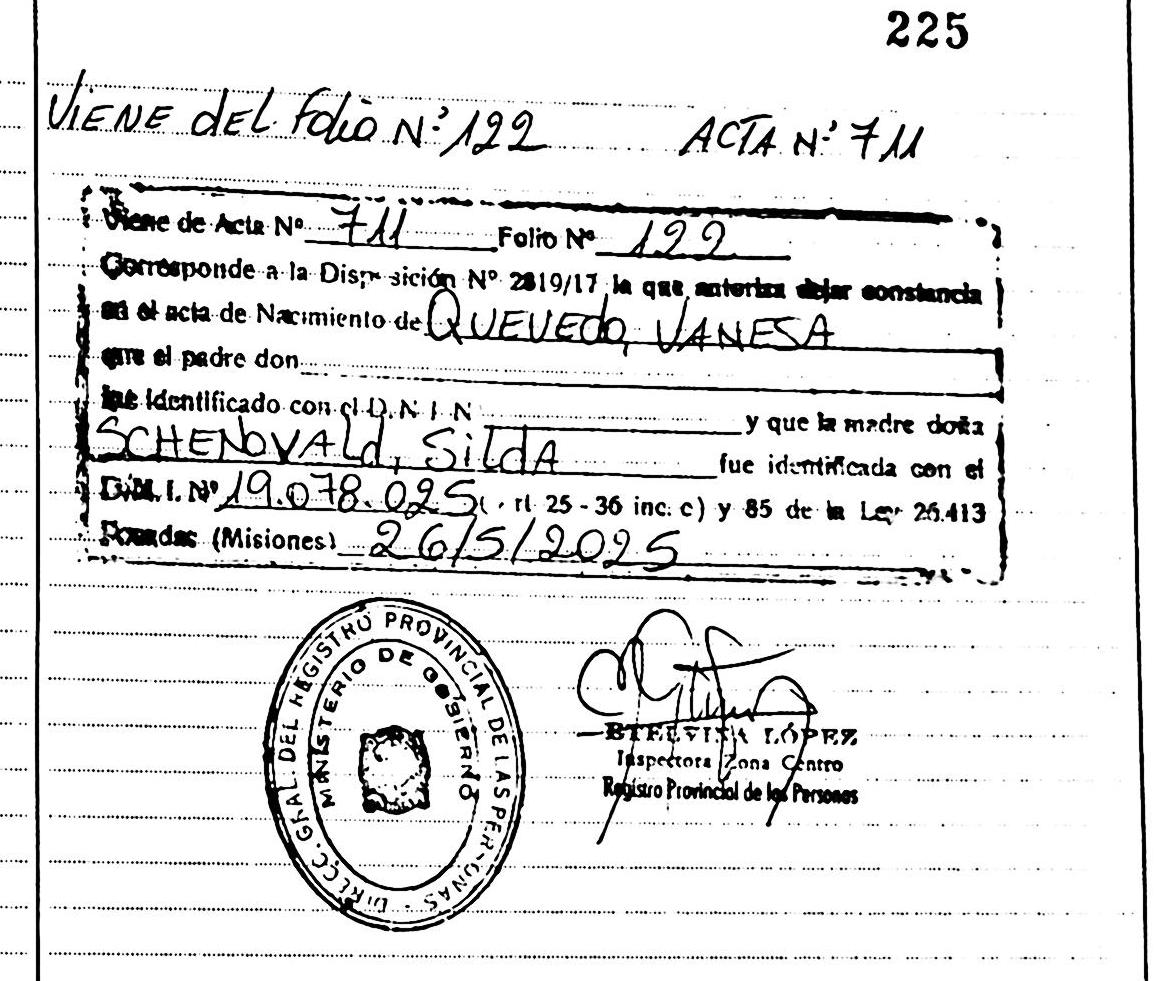 225
VIENE dEL Folio Nº 122 ACTA Nº 711
Viene de Acta Nº 711 Folio Nº 122
Corresponde a la Disposición Nº 2819/17 la que autoriza dejar constancia
en el acta de Nacimiento de QUEVEdo, VANESA
que el padre don
fue identificado con el D. N. I. N y que la madre doña
SCHENOVALd, SILdA fue identificada con el
D.N.I. Nº 19.078.025 ( . rt 25 - 36 inc. c) y 85 de la Ley 26.413
Posadas (Misiones) 26/5/2025
DIRECC. GRAL. DEL REGISTRO PROVINCIAL DE LAS PERSONAS
MINISTERIO DE GOBIERNO
ETELVINA LÓPEZ
Inspectora Zona Centro
Registro Provincial de las Personas